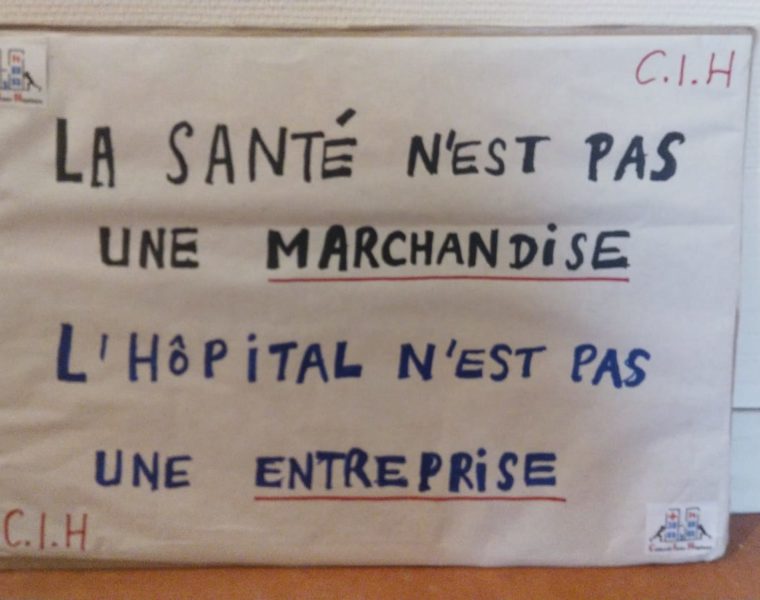 C.I.H
LA SANTÉ N'EST PAS
UNE MARCHANDiSE
L'HôPiTAL N'EST PAS
UNE ENTREPRiSE
C.I.H